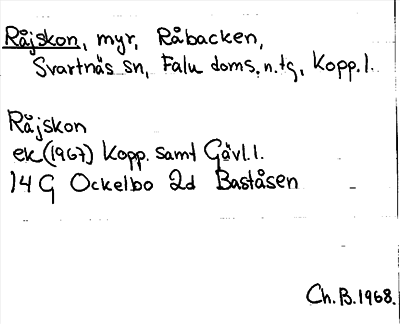 Råjskon, myr, Råbacken,
Svartnäs sn, Falu doms. n. tg, Kopp. l.
Råjskon
ek (1967) Kopp. samt Gävl. l.
14 G Ockelbo 2d Baståsen
Ch. B. 1968.